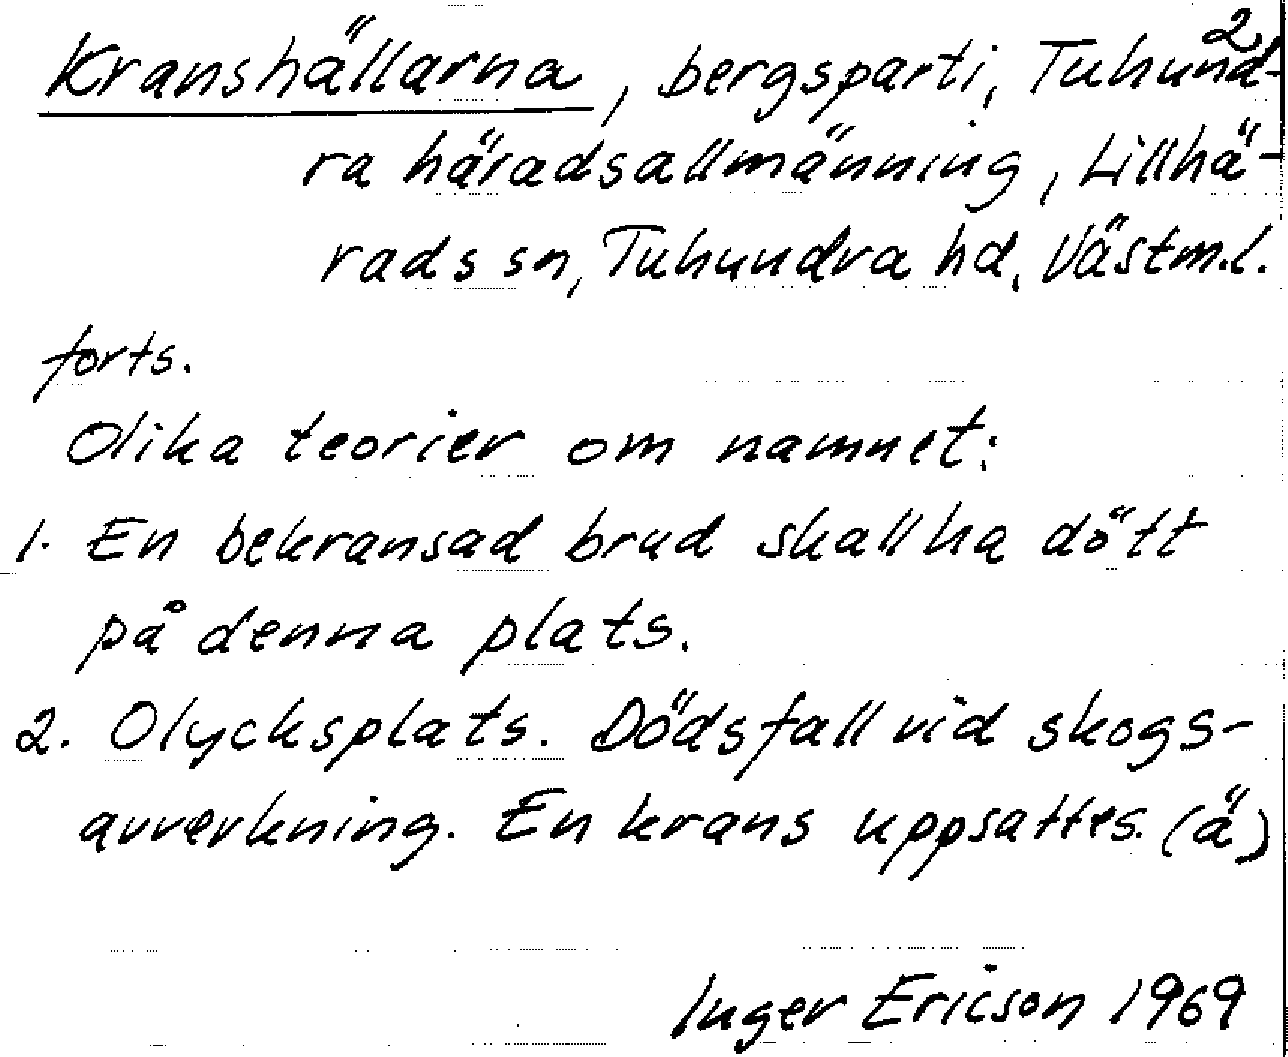 2
Kranshällarna, bergsparti, Tuhund-
ra häradsallmänning, Lillhä-
rads sn, Tuhundra hd, Västm.l.
forts.
Olika teorier om namnet:
1. En bekransad brud skall ha dött
på denna plats.
2. Olycksplats. Dödsfall vid skogs-
avverkning. En krans uppsattes. (ä)
Inger Ericson 1969